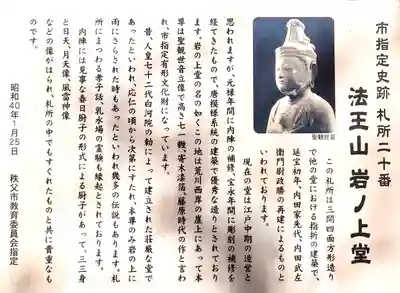 市指定史跡 札所二十番
法王山 岩ノ上堂
この札所は三間四面方形造り
で他の堂における指折の建築で、
延宝初年、内田家先代、内田武左
衛門尉政勝の再建によるものと
いわれております。
現在の堂は江戸中期の造営と
聖観世音
思われますが、元禄年間に内陣の補修、宝永年間に彫刻の補修を
経てきたもので、唐様系統の建築で優秀な造りとされており
ます。岩の上堂の名の如くこの地は荒川西岸の崖上にあって本
尊は聖観世音立像で高さ七一糎、寄木漆箔、藤原時代の作と言わ
れ、市指定有形文化財になっています。
昔、人皇七十二代白河院の勅によって建立された荘厳な堂で
あったといわれ、応仁の頃から次第にすたれ、本尊のみ岩の上に
雨にさらされた時もあったといわれ幾多の伝説もあります。札
所にまつわる孝子話、乳水場の霊験も縁起とされております。
内陣には見事な春日厨子の形式による厨子があって、三三身
と日天、月天像、風雷神像
などの像がはられ、札所の中でもすぐれたものと共に貴重なも
のです。
昭和40年1月25日 秩父市教育委員会指定